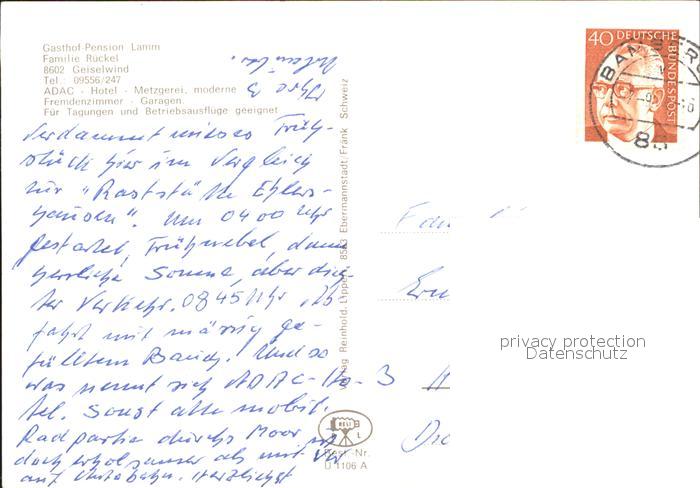 Gasthof-Pension Lamm
Familie Rückel
8602 Geiselwind
Tel.: 09556/247
ADAC - Hotel - Metzgerei, moderne
Fremdenzimmer - Garagen.
Für Tagungen und Betriebsausflüge geeignet
Verdammt mieses Früh-
stück hier im Vergleich
zur "Raststätte Ehlers-
hausen". Um 0400 Uhr
gestartet, Frühnebel, dann
herrliche Sonne, aber dich-
ter Verkehr. 0845 Uhr Ab-
fahrt mit mässig ge-
fülltem Bauch. Und so
was nennt sich ADAC-Ho-
tel. Sonst alle mobil.
Radpartie durchs Moor
doch erholsamer als mit
auf Autobahn. Herzlichst
Verlag Reinhold Lippert 8553 Ebermannstadt/Fränk. Schweiz
Best.-Nr.
U 1106 A
40 DEUTSCHE
BUNDESPOST
BAMBERG
Fam
3
privacy protection
Datenschutz